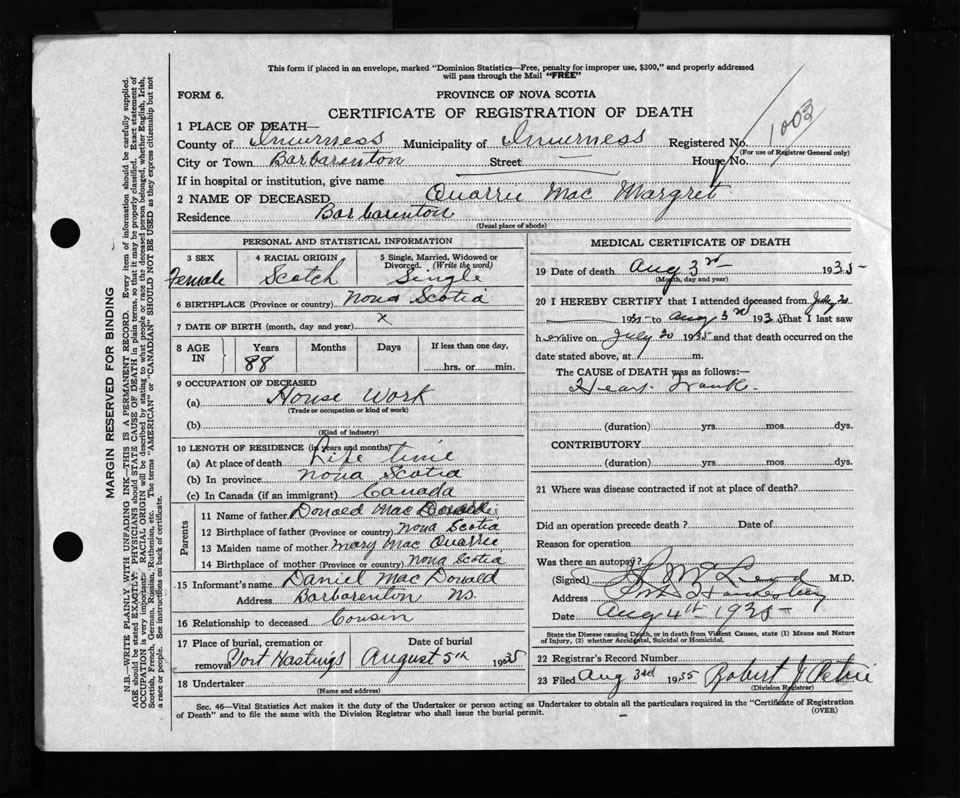 This form if placed in an envelope, marked "Dominion Statistics—Free, penalty for improper use, $300," and properly addressed
will pass through the Mail "FREE"
FORM 6.
PROVINCE OF NOVA SCOTIA
1003
CERTIFICATE OF REGISTRATION OF DEATH
1 PLACE OF DEATH—
County of Inverness Municipality of Inverness Registered No.
(For use of Registrar General only)
City or Town Barbarenton Street — House No.
If in hospital or institution, give name
2 NAME OF DECEASED Quarrie Mac Margret
Residence Barbarenton
(Usual place of abode)
PERSONAL AND STATISTICAL INFORMATION
3 SEX 4 RACIAL ORIGIN 5 Single, Married, Widowed or Divorced. (Write the word)
Female Scotch Single
6 BIRTHPLACE (Province or country) Nova Scotia
7 DATE OF BIRTH (month, day and year) x
8 AGE IN Years Months Days If less than one day,
88 hrs. or min.
9 OCCUPATION OF DECEASED
(a) House Work
(Trade or occupation or kind of work)
(b)
(Kind of industry)
10 LENGTH OF RESIDENCE (in years and months)
(a) At place of death Life time
(b) In province Nova Scotia
(c) In Canada (if an immigrant) Canada
Parents
11 Name of father Donald Mac Donald
12 Birthplace of father (Province or country) Nova Scotia
13 Maiden name of mother Mary Mac Quarrie
14 Birthplace of mother (Province or country) Nova Scotia
15 Informant's name Daniel Mac Donald
Address Barbarenton NS.
16 Relationship to deceased Cousin
17 Place of burial, cremation or removal Date of burial
Port Hastings August 5th 1935
18 Undertaker
(Name and address)
MEDICAL CERTIFICATE OF DEATH
19 Date of death Aug 3rd 1935
(Month, day and year)
20 I HEREBY CERTIFY that I attended deceased from July 20
1935 to Aug 3rd 1935 that I last saw
her alive on July 20 1935 and that death occurred on the
date stated above, at m.
The CAUSE OF DEATH was as follows:—
(duration) yrs. mos. dys.
CONTRIBUTORY
(duration) yrs. mos. dys.
21 Where was disease contracted if not at place of death?
Did an operation precede death? Date of
Reason for operation
Was there an autopsy?
(Signed) M.D.
Address
Date Aug 4th 1935
State the Disease causing Death, or in death from Violent Causes, state (1) Means and Nature
of Injury, (2) whether Accidental, Suicidal or Homicidal.
22 Registrar's Record Number
23 Filed Aug 3rd 1935 Robert J Petrie
(Division Registrar)
Sec. 46—Vital Statistics Act makes it the duty of the Undertaker or person acting as Undertaker to obtain all the particulars required in the "Certificate of Registration
of Death" and to file the same with the Division Registrar who shall issue the burial permit.
(OVER)
MARGIN RESERVED FOR BINDING
N.B.—WRITE PLAINLY WITH UNFADING INK—THIS IS A PERMANENT RECORD. Every item of information should be carefully supplied.
AGE should be stated EXACTLY. PHYSICIANS should STATE CAUSE OF DEATH in plain terms, so that it may be properly classified. Exact statement of
OCCUPATION is very important. RACIAL ORIGIN will be described by stating to what people or race the deceased person belonged, whether English, Irish,
Scottish, French, German, Russian, Ruthenian, etc. The terms "AMERICAN" or "CANADIAN" SHOULD NOT BE USED as they express citizenship but not
a race or people. See instructions on back of certificate.